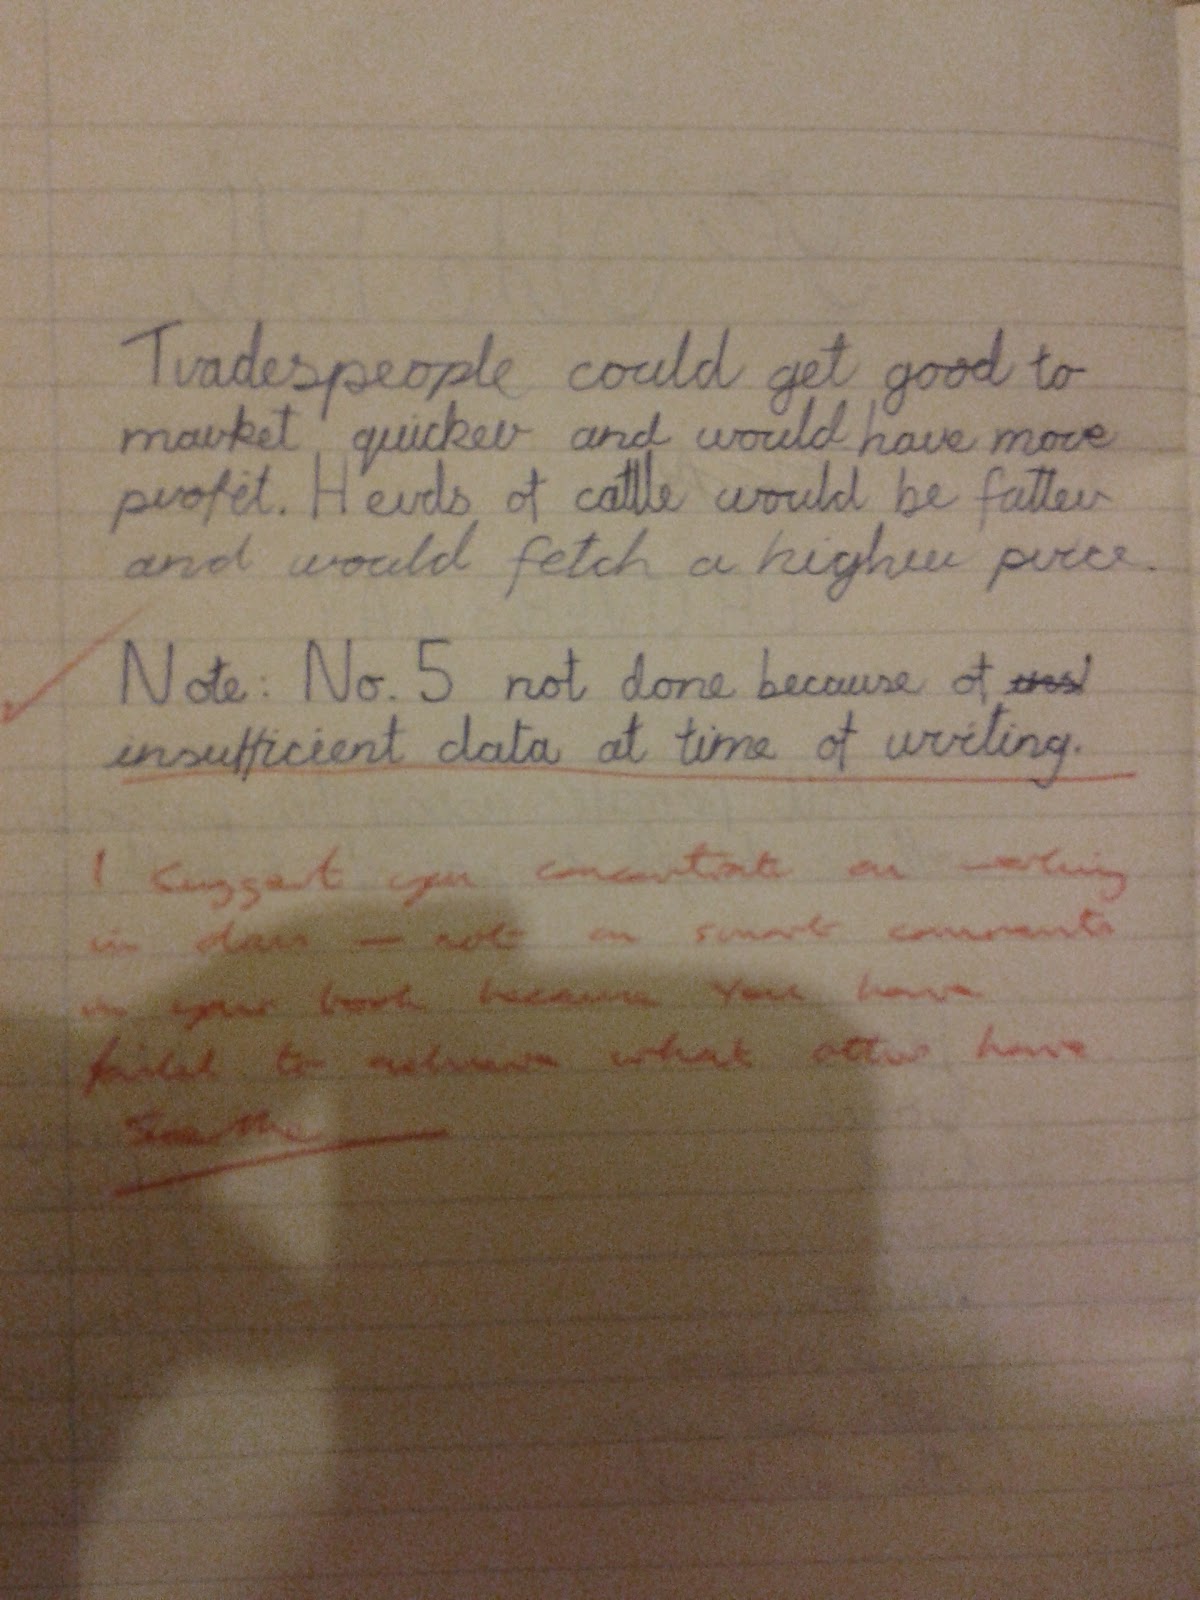 Tradespeople could get good to
market quicker and would have more
profit. Herds of cattle would be fatter
and would fetch a higher price.
Note: No. 5 not done because of
insufficient data at time of writing.
I suggest you concentrate on working
in class — not on smart comments
in your book because you have
failed to achieve what others have